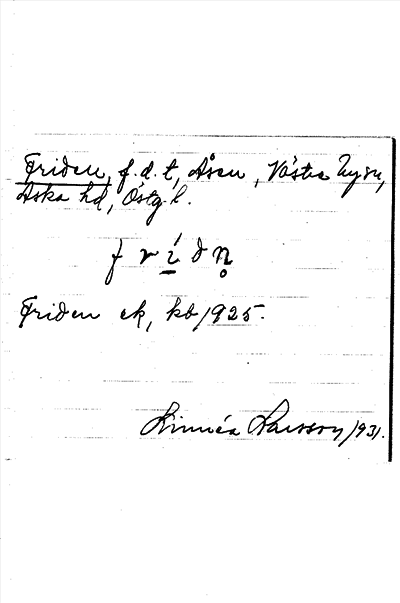 Friden, f. d. t, Åsen, Västra Ny sn,
Aska hd, Östg. l.
f r í d n̥
Friden ek, kb 1925.
Linnéa Larsson 1931.